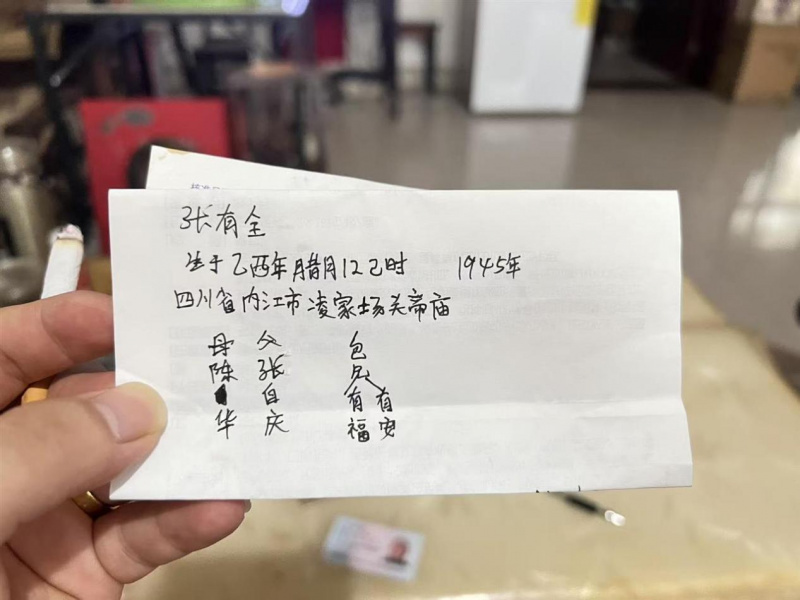 张有全
生于乙酉年腊月12己时 1945年
四川省内江市凌家场关帝庙
母陈华
父张自庆
包兄有福
有安